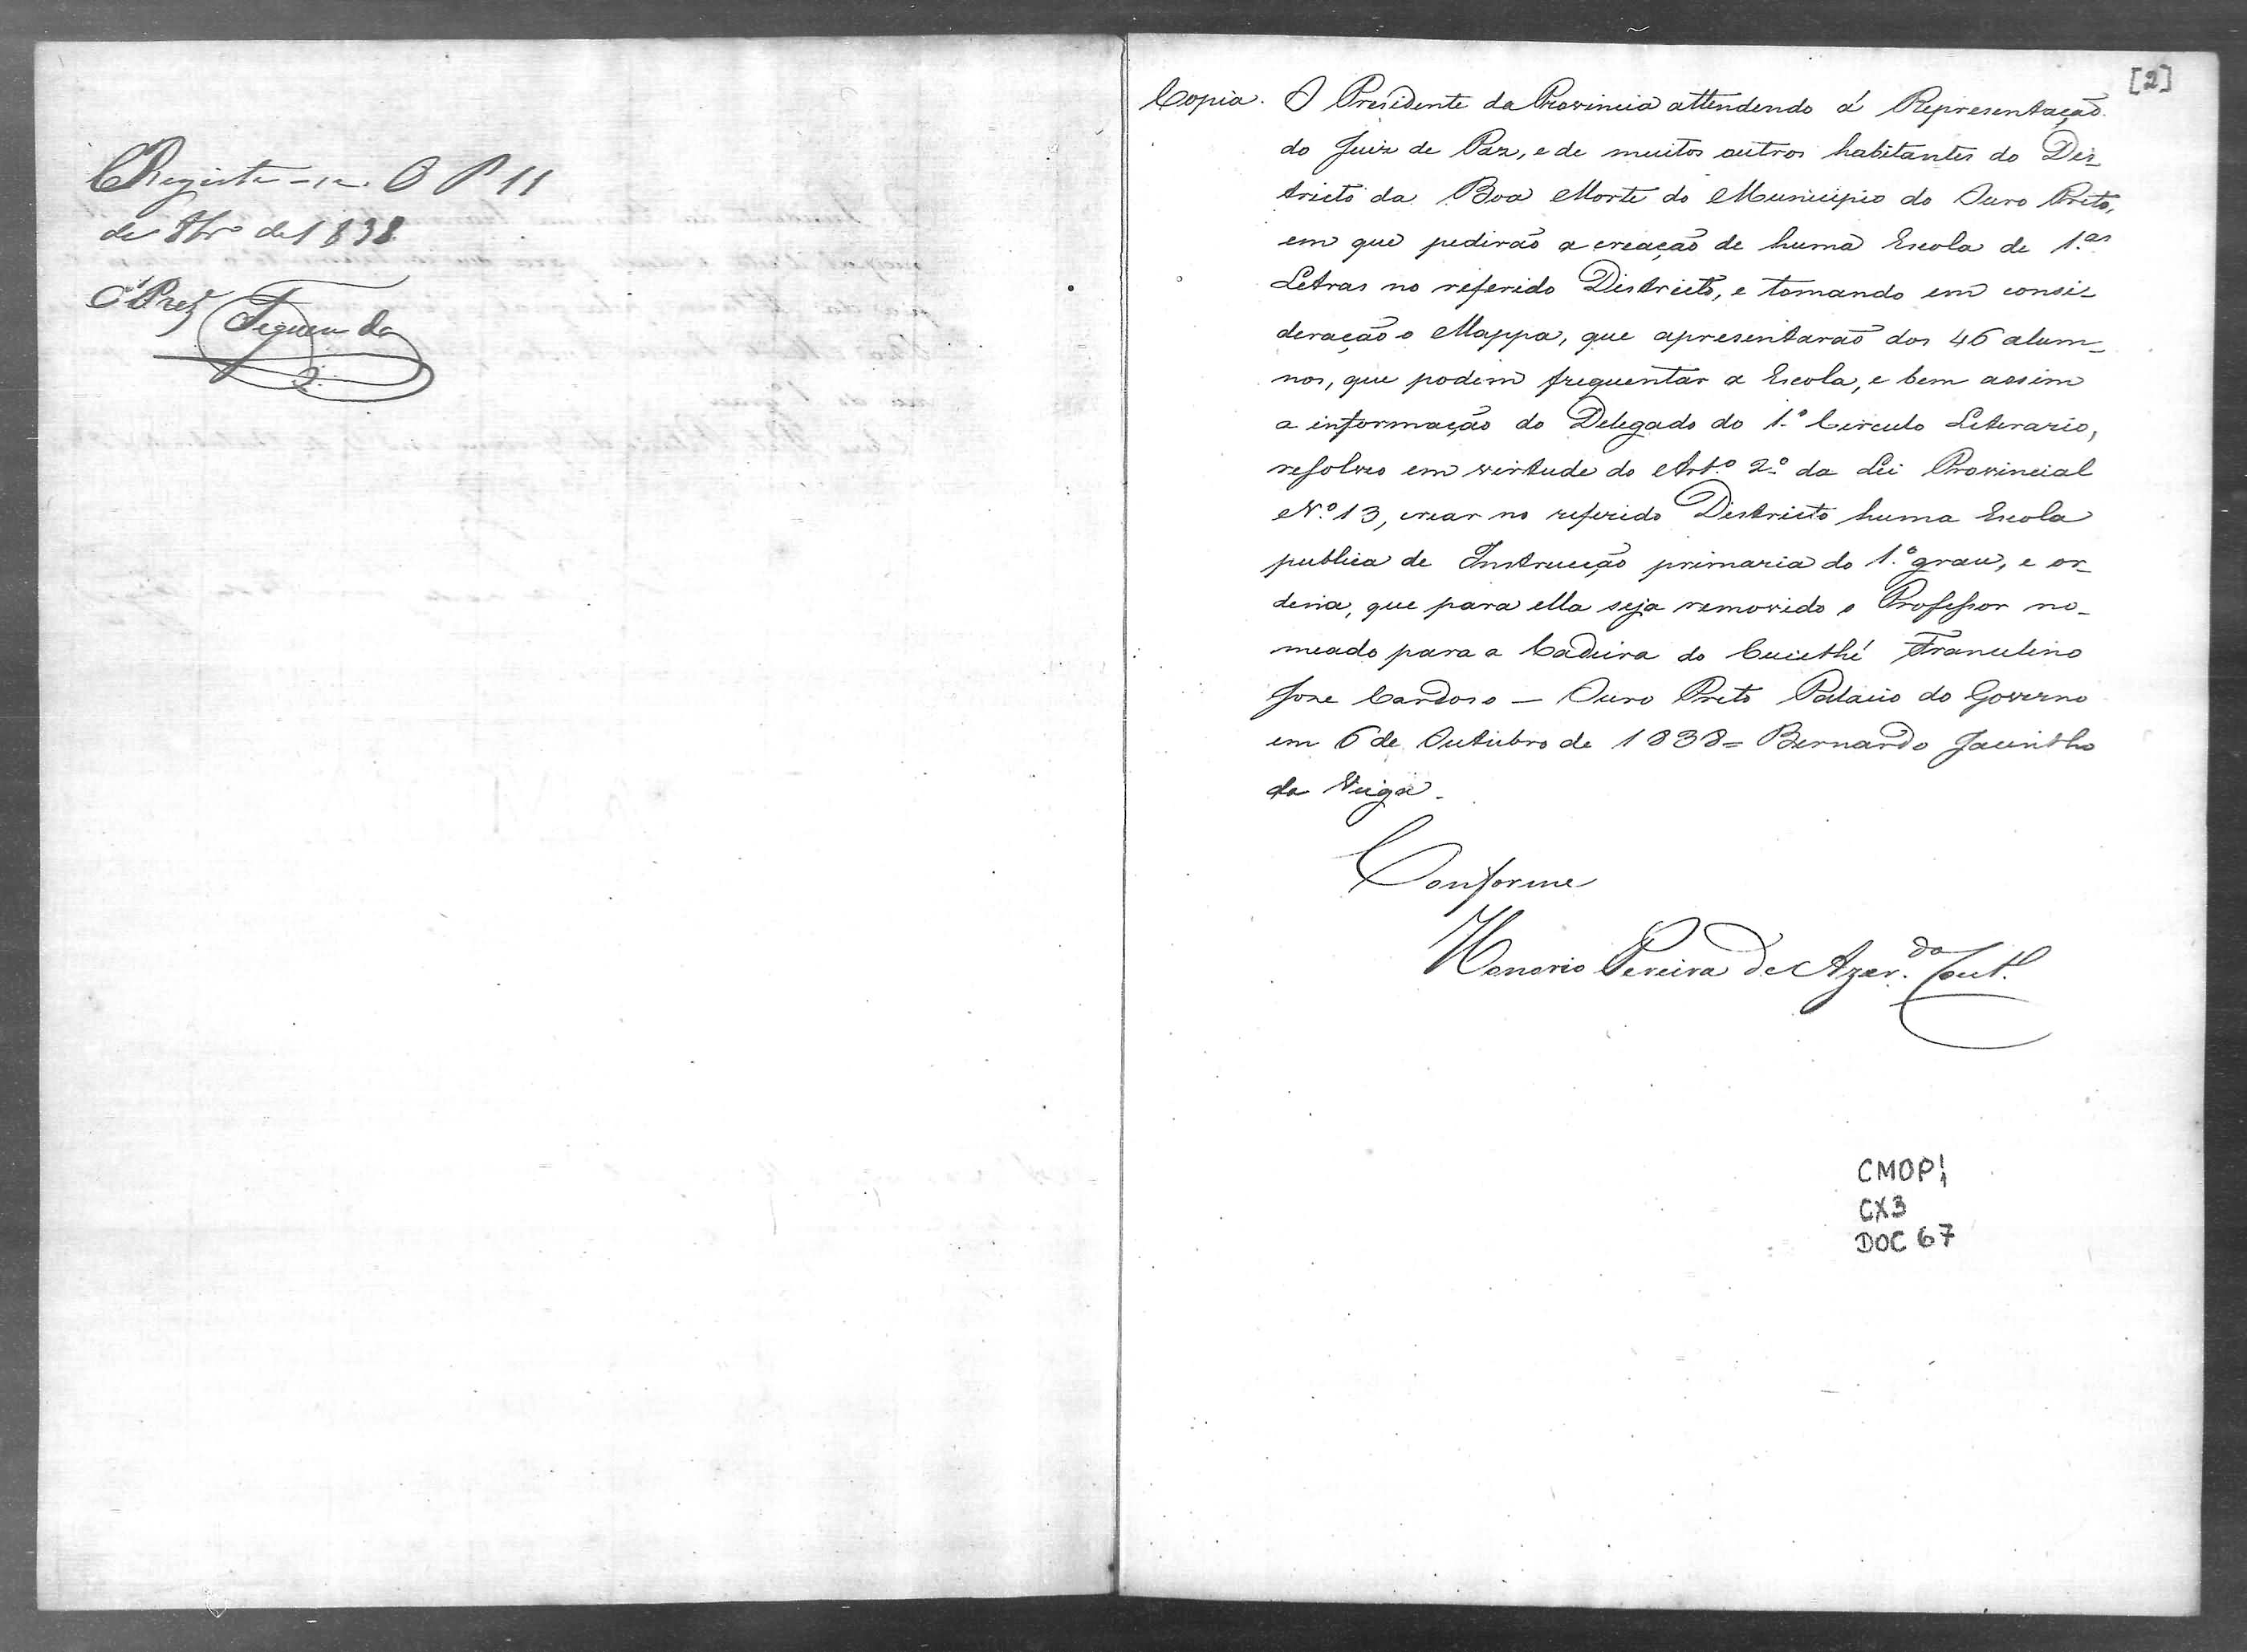 Registe-se. O P 11
de 8br.o de 1838.
O Prez
Figueredo
[2]
Copia. O Presidente da Provincia attendendo á Representação
do Juiz de Paz, e de muitos outros habitantes do Des_
tricto da Boa Morte do Municipio do Ouro Preto,
em que pedirão a creação de huma Escola de 1.as
Letras no referido Districto, e tomando em consi_
deração o Mappa, que apresentarão dos 46 alum_
nos, que podem frequentar a Escola, e bem assim
a informação do Delegado do 1.º Circulo Literario,
resolveo em virtude do Art.º 2.º da Lei Provincial
N.º 13, crear no referido Destricto huma Escola
publica de Instrucção primaria do 1.º grau, e or_
dena, que para ella seja removido o Professor no_
meado para a Cadeira do Cuiethé Francelino
Jose Cardoso — Ouro Preto Palacio do Governo
em 6 de Outubro de 1838 = Bernardo Jacintho
da Veiga.
Conforme
Honorio Pereira de Azer.do Cout.º
CMOP1
CX3
DOC 67